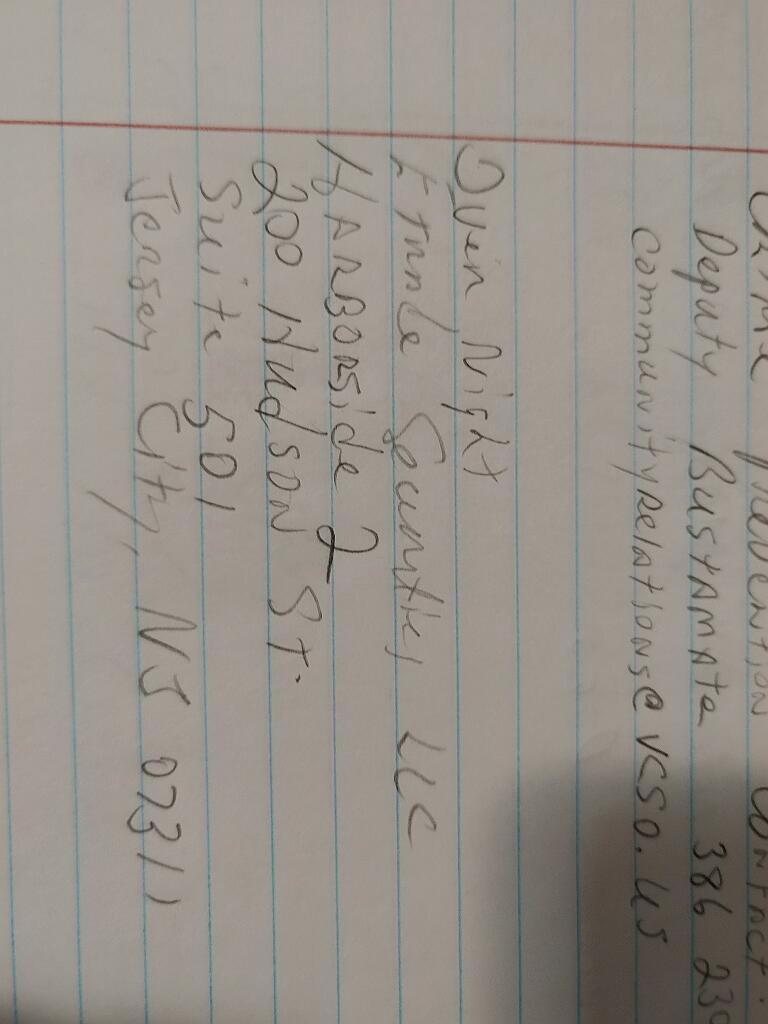 Crime prevention Contact.
Deputy Bustamata 386 230
communityrelations@vcso.us
Over Night
Security, LLC
HARBORSide 2
200 Hudson St.
Suite 501
Jersey City, NJ 07311